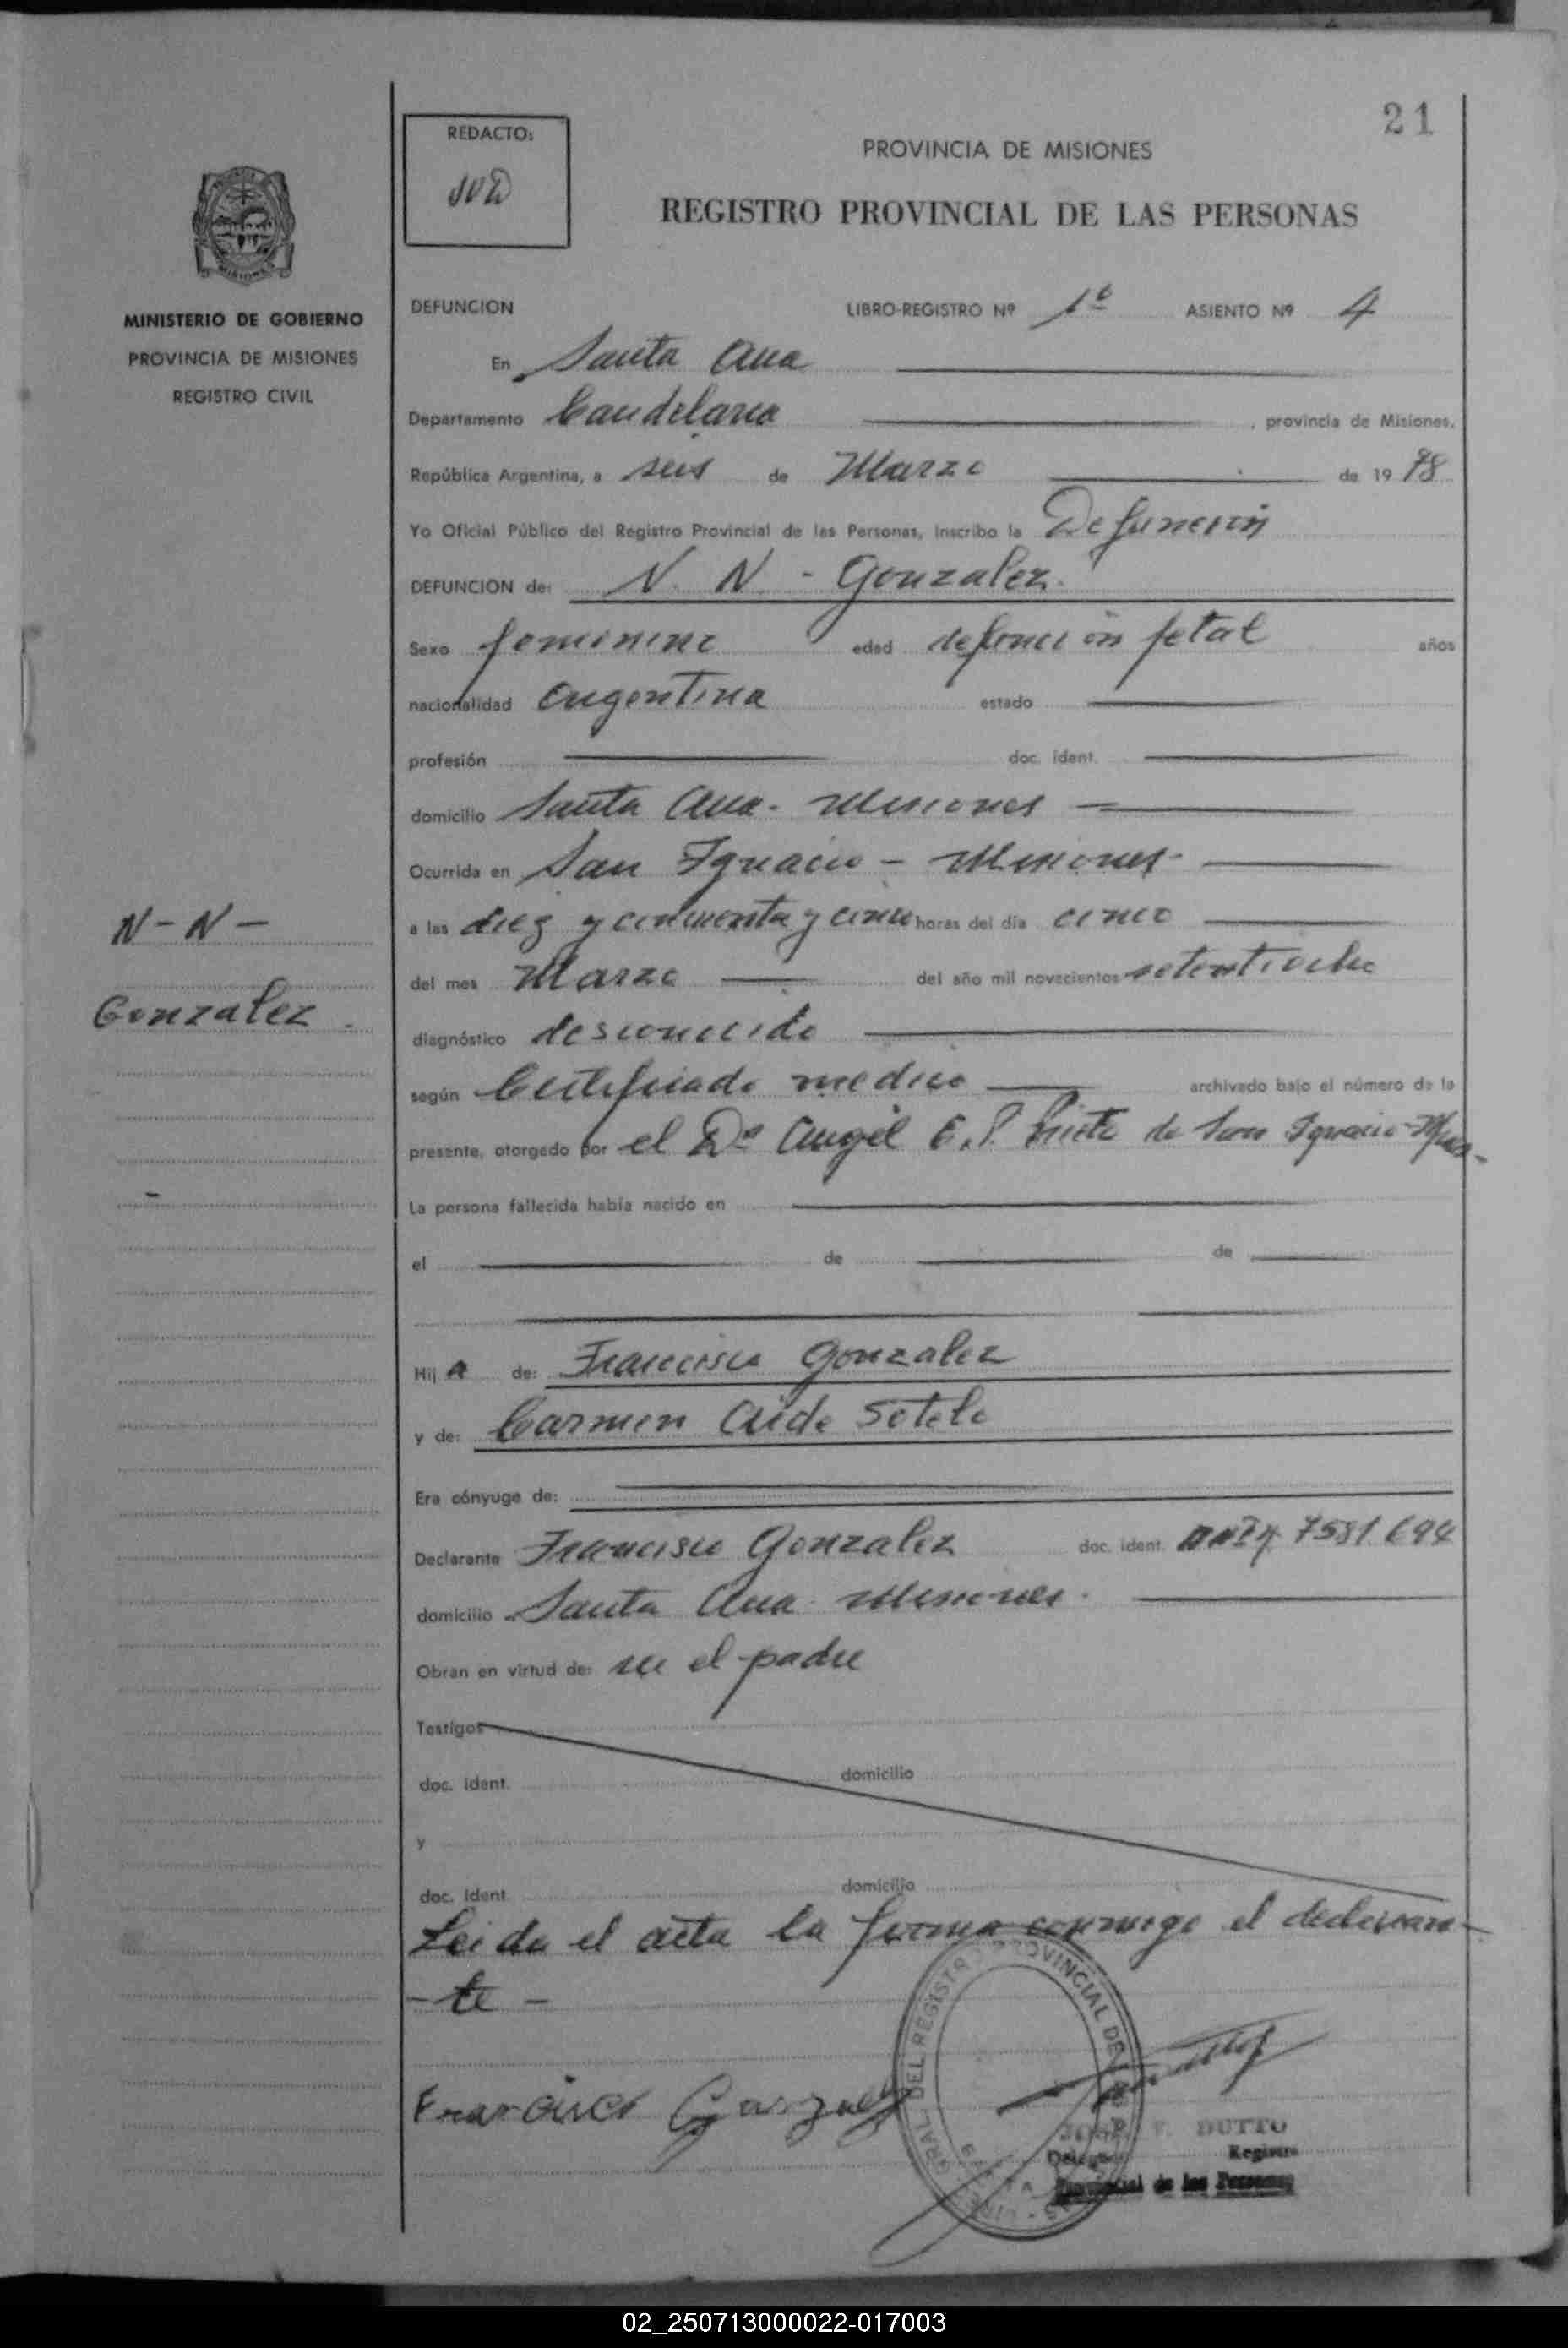 21
REDACTO:
PROVINCIA DE MISIONES
REGISTRO PROVINCIAL DE LAS PERSONAS
MINISTERIO DE GOBIERNO
PROVINCIA DE MISIONES
REGISTRO CIVIL
DEFUNCION LIBRO-REGISTRO Nº 1º ASIENTO Nº 4
En Santa Ana
Departamento Candelaria , provincia de Misiones,
República Argentina, a seis de Marzo de 1978
Yo Oficial Público del Registro Provincial de las Personas, inscribo la Defunción
DEFUNCION de: N. N - Gonzalez.
Sexo femenino edad defuncion fetal años
nacionalidad Argentina estado
profesión doc. ident.
domicilio Santa Ana - Misiones
Ocurrida en San Ignacio - Misiones -
a las diez y cincuenta y cinco horas del día cinco
del mes Marzo del año mil novecientos setentiocho
diagnóstico desconocido
según Certificado medico archivado bajo el número de la
presente, otorgado por el Dr Angel E. P. de San Ignacio-Mnes-
La persona fallecida había nacido en
el de de
Hij a de: Francisco Gonzalez
y de: Carmen Aide Sotelo
Era cónyuge de:
Declarante Francisco Gonzalez doc. ident. 7581.694
domicilio Santa Ana Misiones.
Obran en virtud de: ser el padre
Testigos
doc. ident. domicilio
y
doc. ident. domicilio
Leida el acta la firma conmigo el declaran-
-te -
Francisco Gonzalez
DUTTO
Registro
Provincial de las Personas
N-N-
Gonzalez
02_250713000022-017003